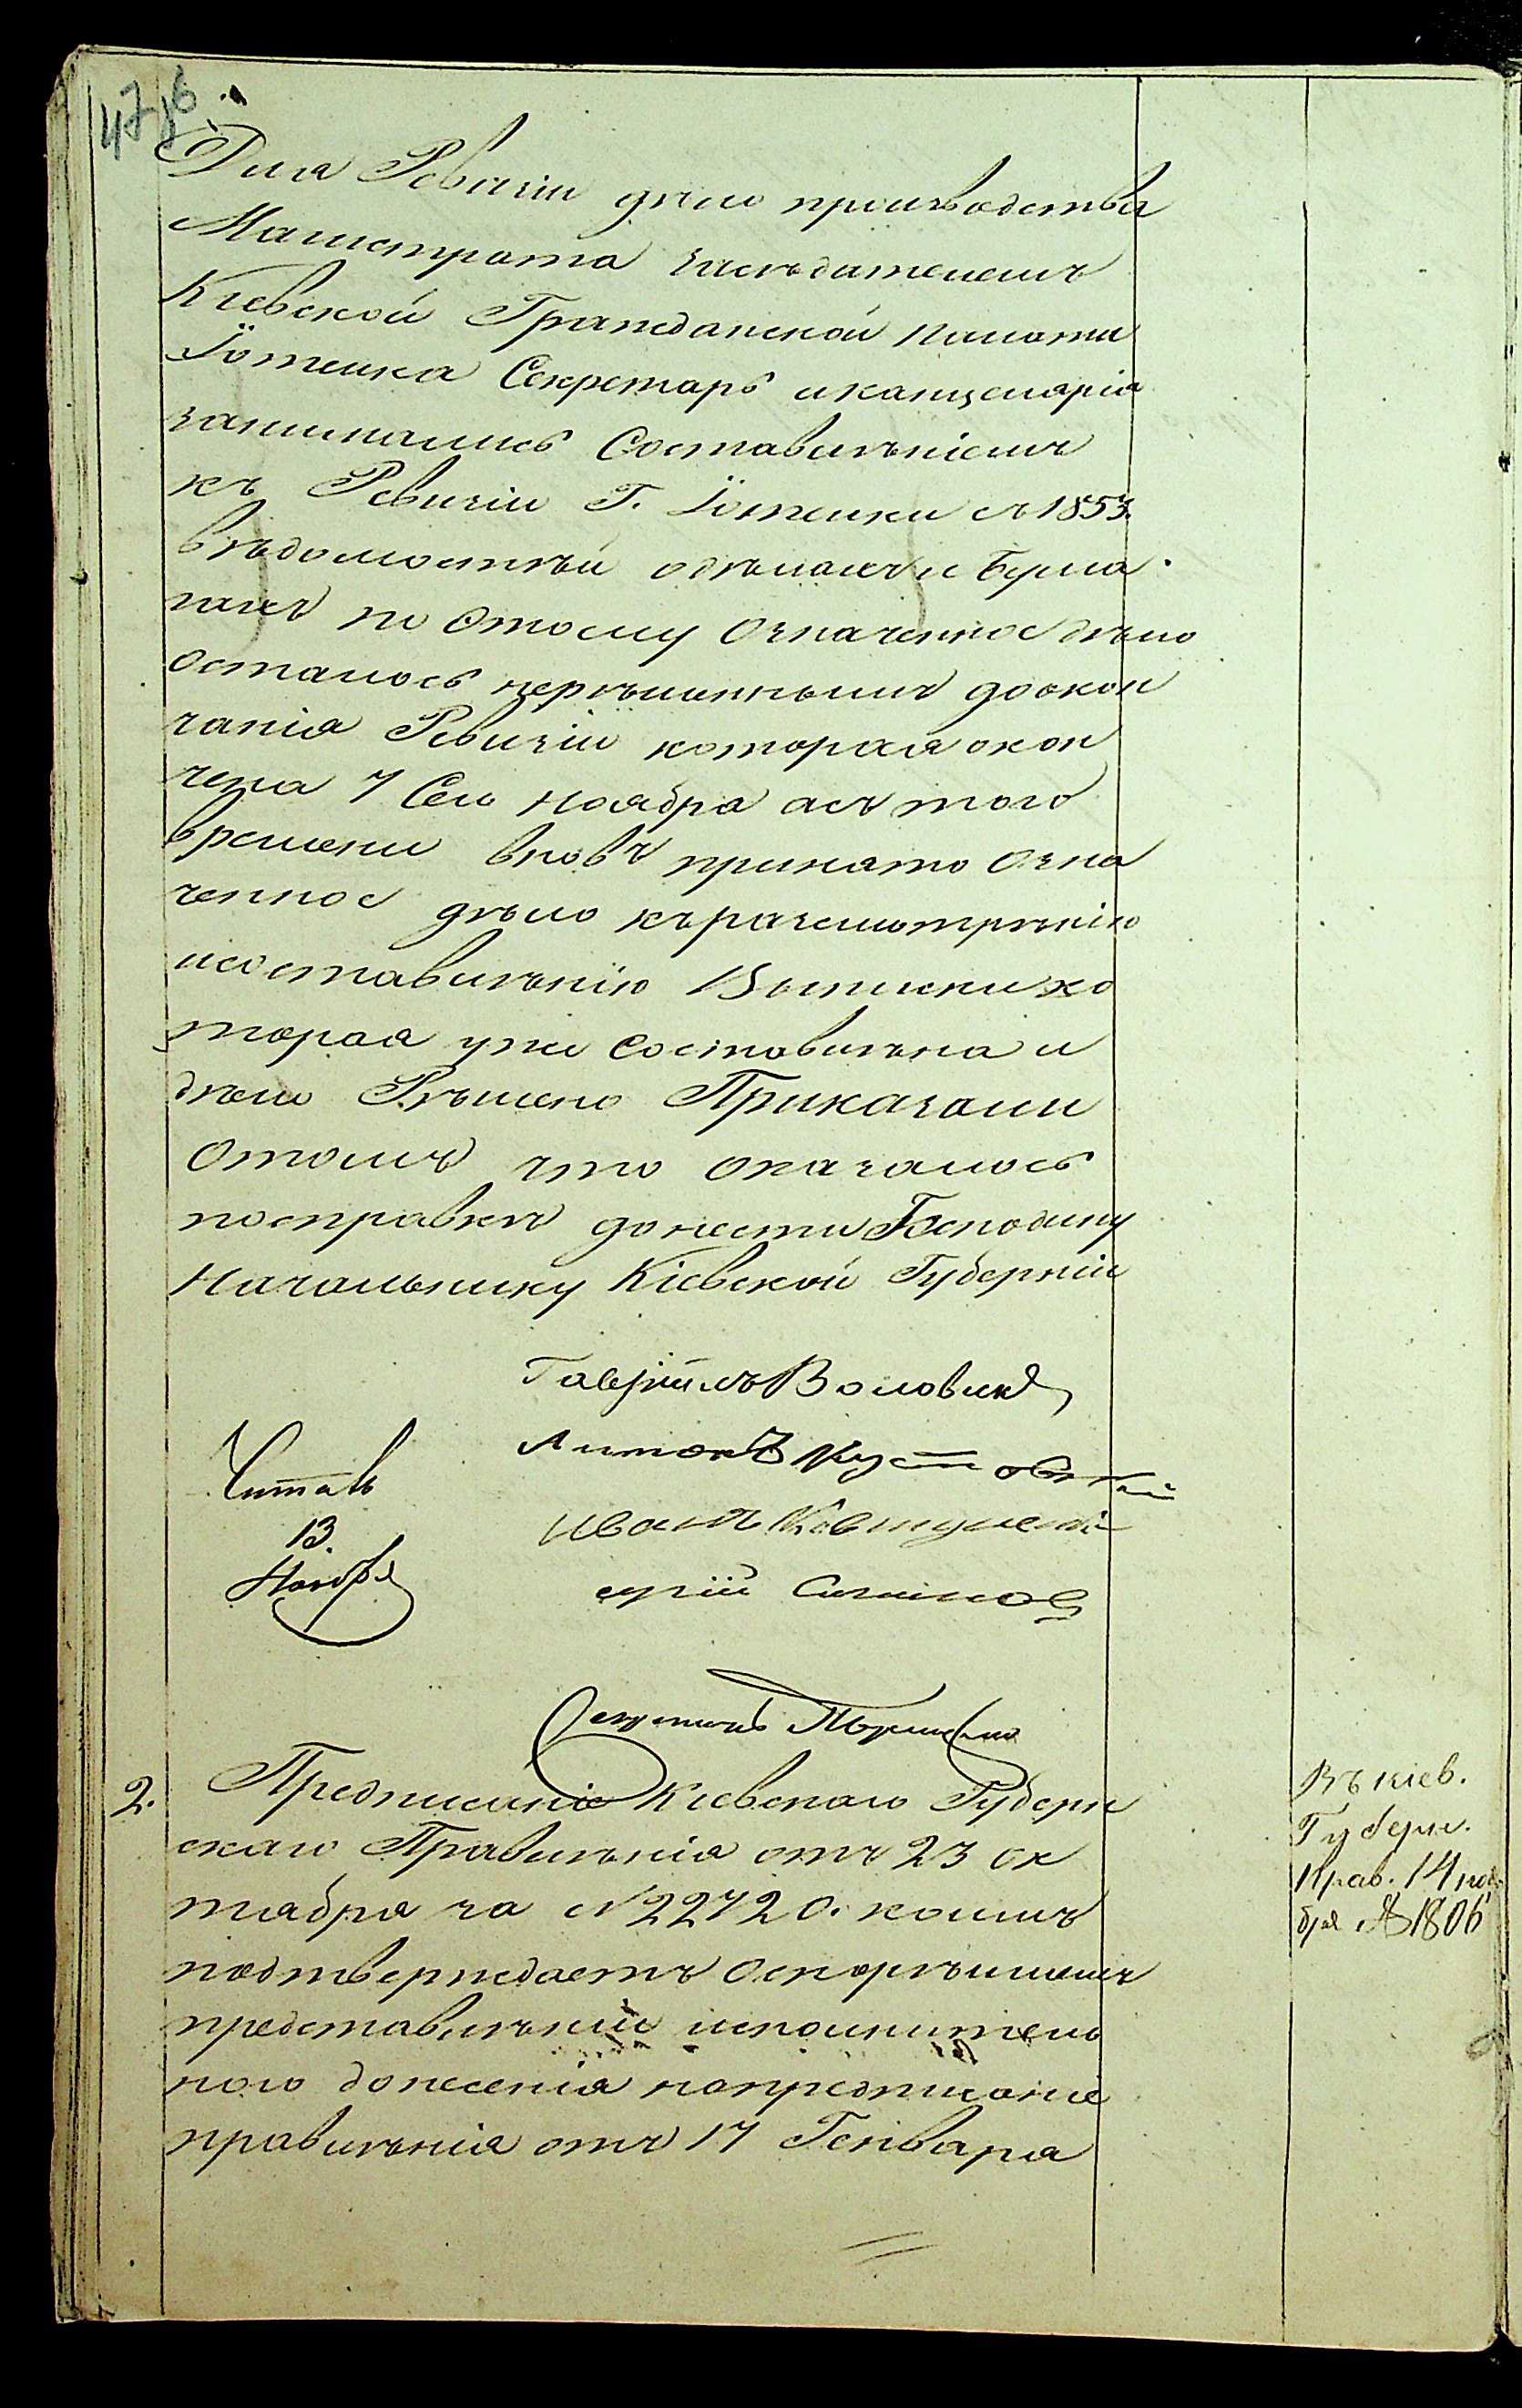 Для Ревизіи дѣло производства
Магистрата засѣдателемъ
Кіевской Гражданской палаты
Іотейка Секретарь иканцелярія
занимались Составлѣніемъ
къ Ревизіи Г. Іотейки съ 1853.
вѣдомостѣй одѣлахъ и Бума
гахъ по Этому Означенное дѣло
осталось нерѣшеннымъ доокон
чанія Ревизіи которая окон
чена 7 Сего Ноября асъ того
времени вновь принято Озна
ченное дѣло къразсмотрѣнію
исоставлѣнію Выписки ко
торая уже Составлѣна и
дѣло Рѣшено Приказали
Отомъ что оказалось
посправкѣ донести Господину
Начальнику Кіевской Губерніи
Гавріилъ Воловик
Антонъ
Иванъ
Читалъ
13.
Ноября
Секретарь
2.
Предписаніе Кіевскаго Губерн
скаго Правлѣнія отъ 23 Ок
тября за № 22720. коимъ
подтверждаетъ Оскорѣйшемъ
представлѣніи исполнитель
ного донесенія напредписаніе
правлѣнія отъ 17 Генваря
Въ Кіев.
Губерн.
Прав. 14 ноя
бря № 1806